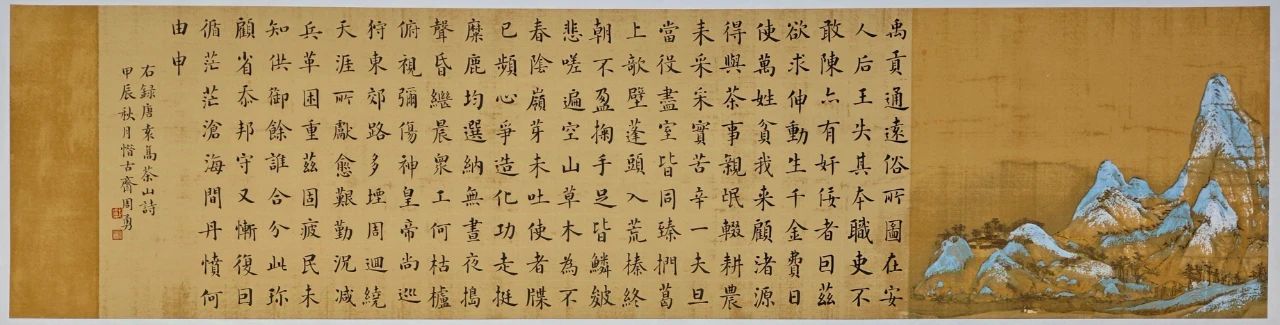 禹貢通遠俗所圖在安
人后王失其本職吏不
敢陳亦有奸佞者因茲
欲求伸動生千金費日
使萬姓貧我来顧渚源
得與茶事親氓輟耕農
耒采采實苦辛一夫旦
當役盡室皆同臻捫葛
上歌壁蓬頭入荒榛終
朝不盈掬手足皆鱗皴
悲嗟遍空山草木為不
春陰嶺芽未吐使者牒
已頻心爭造化功走挺
糜鹿均選納無晝夜搗
聲昏繼晨眾工何枯櫨
俯視彌傷神皇帝尚巡
狩東郊路多堙周迴繞
天涯所獻愈艱勤況减
兵革困重茲固疲民未
知供御餘誰合分此珍
顧省忝邦守又慚復因
循茫茫滄海間丹憤何
由申
右録唐袁髙茶山詩
甲辰秋月惜古齋周勇